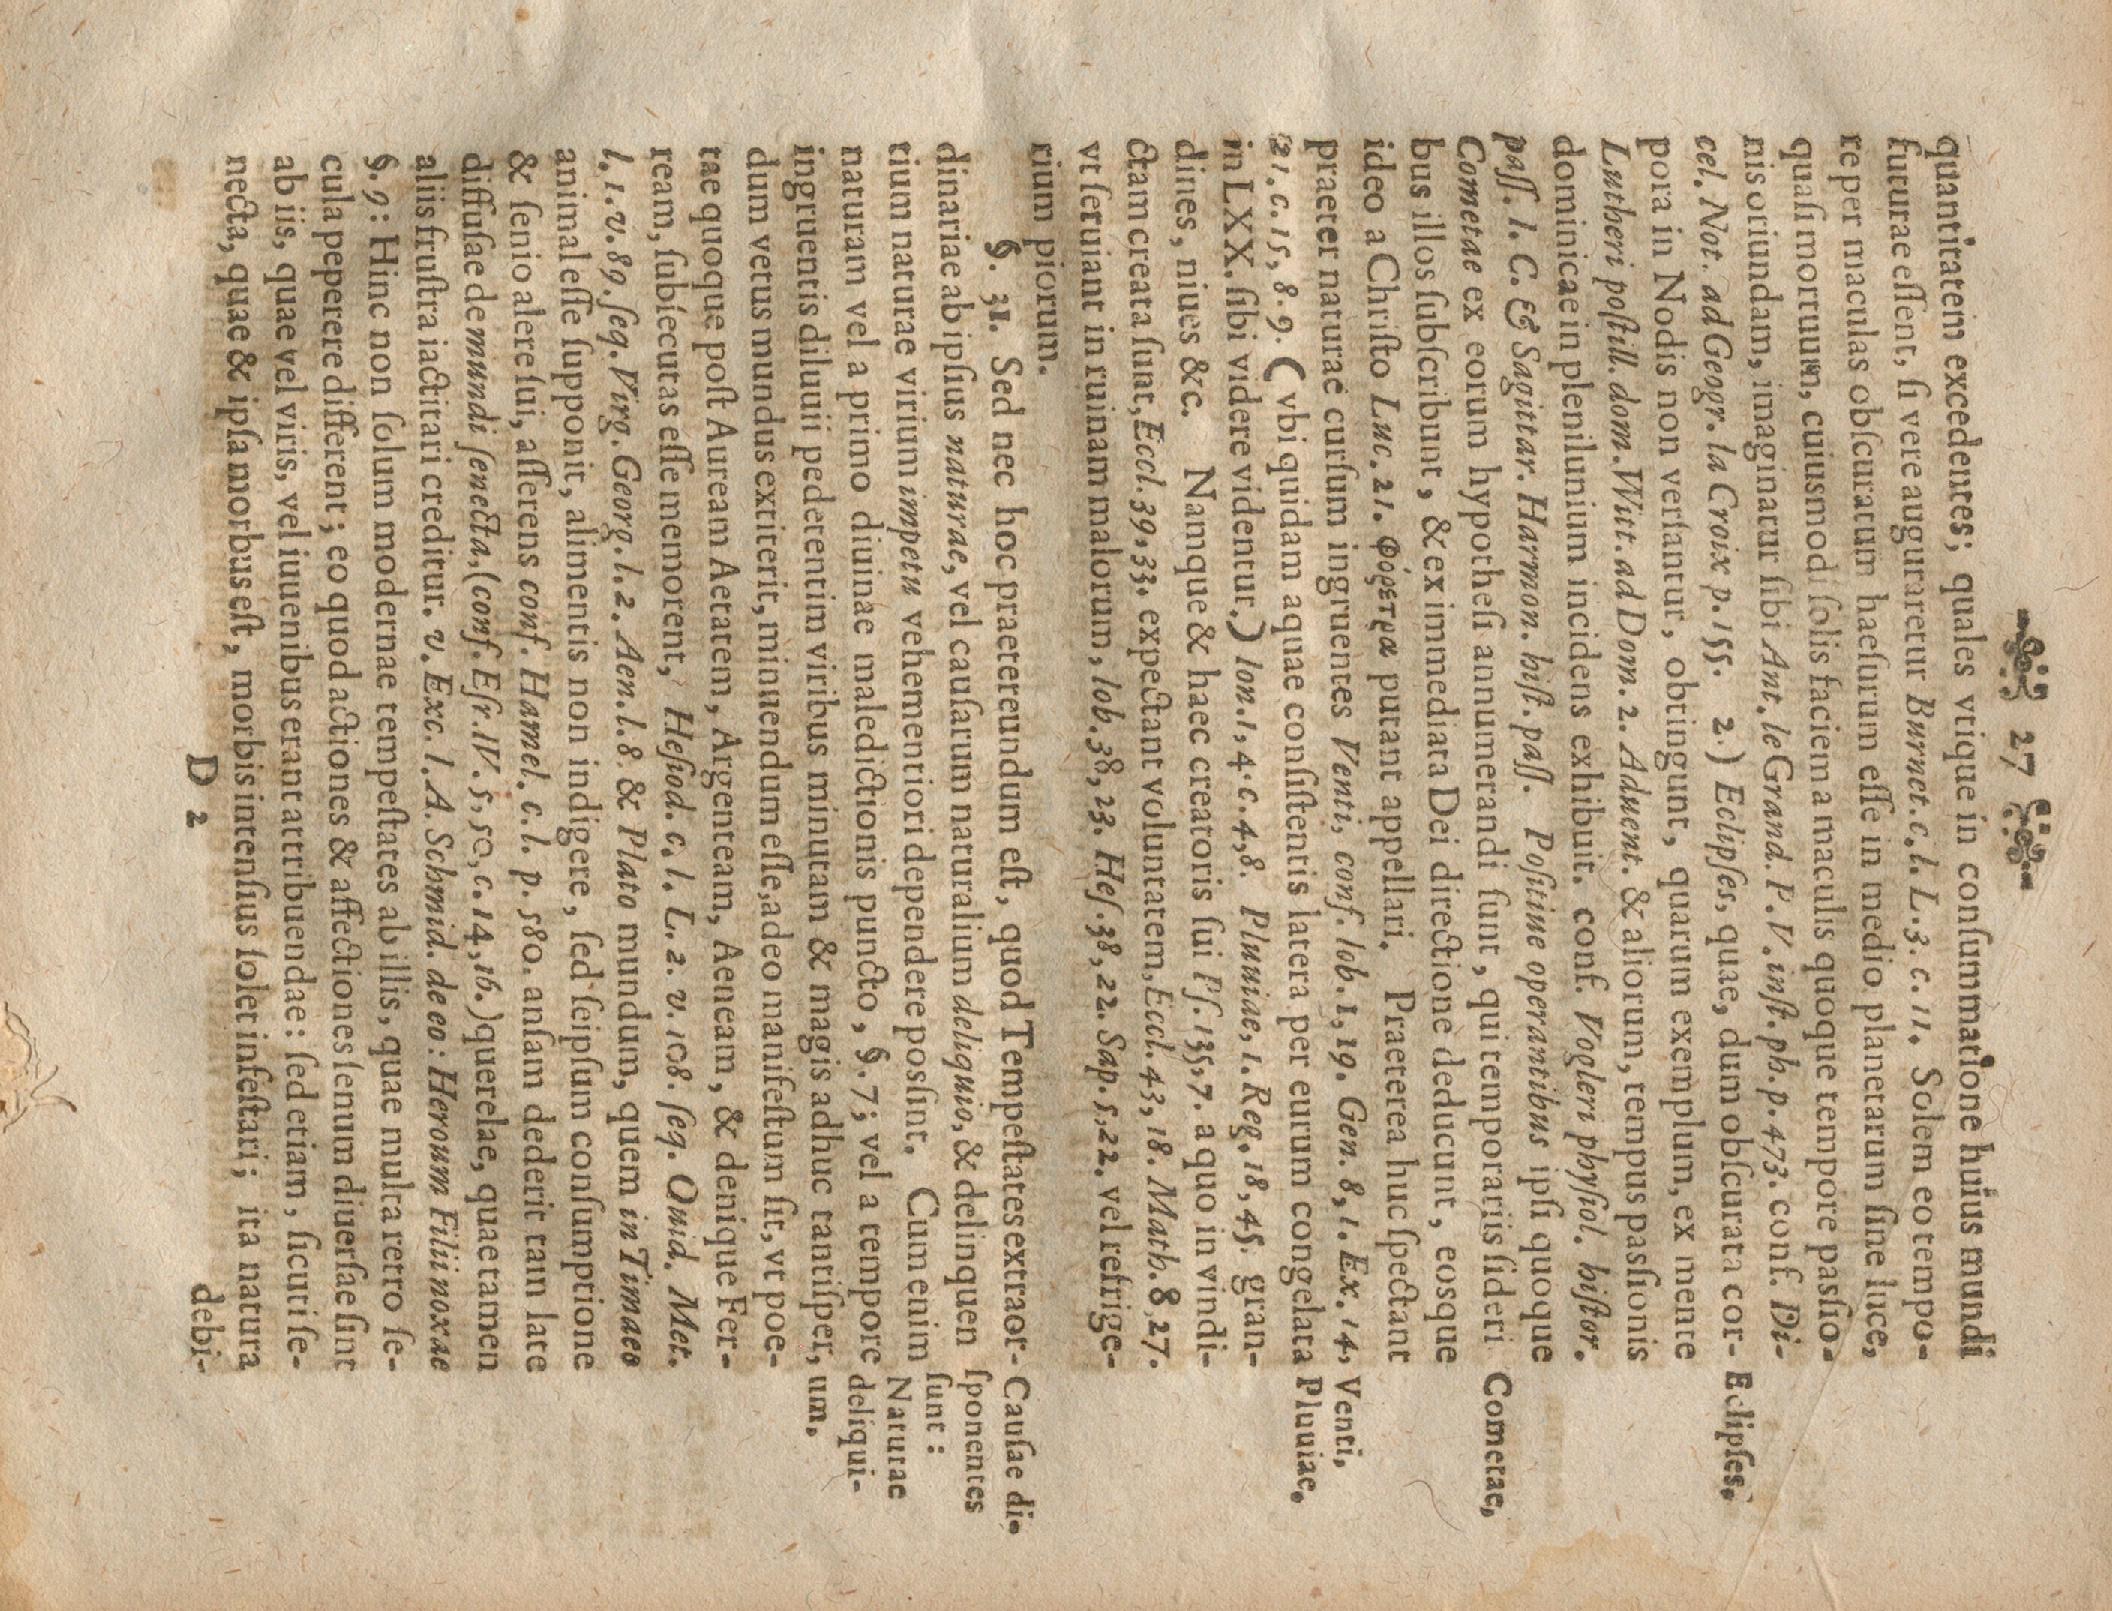 27
quantitatem excedentes; quales vtique in conſummatione huius mundi
futurae eſſent, ſi vere auguraretur Burnet. c. l. L. 3. c. 11. Solem eo tempo-
re per maculas obſcuratum haeſurum eſſe in medio planetarum ſine luce,
quaſi mortuum, cuiusmodi ſolis faciem a maculis quoque tempore paſsio-
nis oriundam, imaginatur ſibi Ant. le Grand. P. V. inſt. ph. p. 473. conf. Di-
cel. Not. ad Geogr. la Croix p. 155. 2.) Eclipſes, quae, dum obſcurata cor-
Eclipſes.
pora in Nodis non verſantur, obtingunt, quarum exemplum, ex mente
Lutheri poſtill. dom. Witt. ad Dom. 2. Aduent. & aliorum, tempus paſsionis
dominicae in plenilunium incidens exhibuit. conf. Vogleri phyſiol. hiſtor.
paſſ. I. C. & Sagittar. Harmon. hiſt. paſſ. Poſitiue operantibus ipſi quoque
Cometae ex eorum hypotheſi annumerandi ſunt, qui temporariis ſideri
Cometae,
bus illos ſubſcribunt, & ex immediata Dei directione deducunt, eosque
ideo a Chriſto Luc. 21. φόβετρα putant appellari. Praeterea huc ſpectant
praeter naturae curſum ingruentes Venti, conf. Iob. 1, 19. Gen. 8, 1. Ex. 14,
Venti,
21. c. 15, 8. 9. (vbi quidam aquae conſiſtentis latera per eurum congelata
Pluuiae,
in LXX. ſibi videre videntur.) Ion. 1, 4. c. 4, 8. Pluuiae, 1. Reg. 18, 45. gran-
dines, niues &c. Namque & haec creatoris ſui Pſ. 135, 7. a quo in vindi-
ctam creata ſunt, Eccl. 39, 33. expectant voluntatem, Eccl. 43, 18. Math. 8, 27.
vt ſeruiant in ruinam malorum, Iob. 38, 23. Heſ. 38, 22. Sap. 5, 22. vel refrige-
rium piorum.
§. 31. Sed nec hoc praetereundum eſt, quod Tempeſtates extraor-
Cauſae di-
dinariae ab ipſius naturae, vel cauſarum naturalium deliquio, & delinquen
ſponentes
ſunt:
tium naturae virium impetu vehementiori dependere poſsint. Cum enim
Naturae
naturam vel a primo diuinae maledictionis puncto, §. 7; vel a tempore
deliqui-
ingruentis diluuii pedetentim viribus minutam & magis adhuc tantiſper,
um,
dum vetus mundus extiterit, minuendum eſſe, adeo manifeſtum ſit, vt poe-
tae quoque poſt Auream Aetatem, Argenteam, Aeneam, & denique Fer-
ream, ſubſecutas eſſe memorent, Heſiod. c. l. L. 2. v. 108. ſeq. Ouid. Met.
l. 1. v. 89. ſeq. Virg. Georg. l. 2. Aen. l. 8. & Plato mundum, quem in Timaeo
animal eſſe ſupponit, alimentis non indigere, ſed ſeipſum conſumptione
& ſenio alere ſui, aſſerens conf. Hamel. c. l. p. 580. anſam dederit tam late
diffuſae de mundi ſenecta, (conf. Eſr. IV. 5, 50, c. 14, 16.) querelae, quae tamen
aliis fruſtra iactitari creditur. v. Exc. I. A. Schmid. de eo: Heroum Filii noxae
§. 9: Hinc non ſolum modernae tempeſtates ab illis, quae multa retro ſe-
cula peperere different; eo quod actiones & affectiones ſenum diuerſae ſint
ab iis, quae vel viris, vel iuuenibus erant attribuendae: ſed etiam, ſicuti ſe-
necta, quae & ipſa morbus eſt, morbis intenſius ſolet infeſtari; ita natura
D 2
debi-